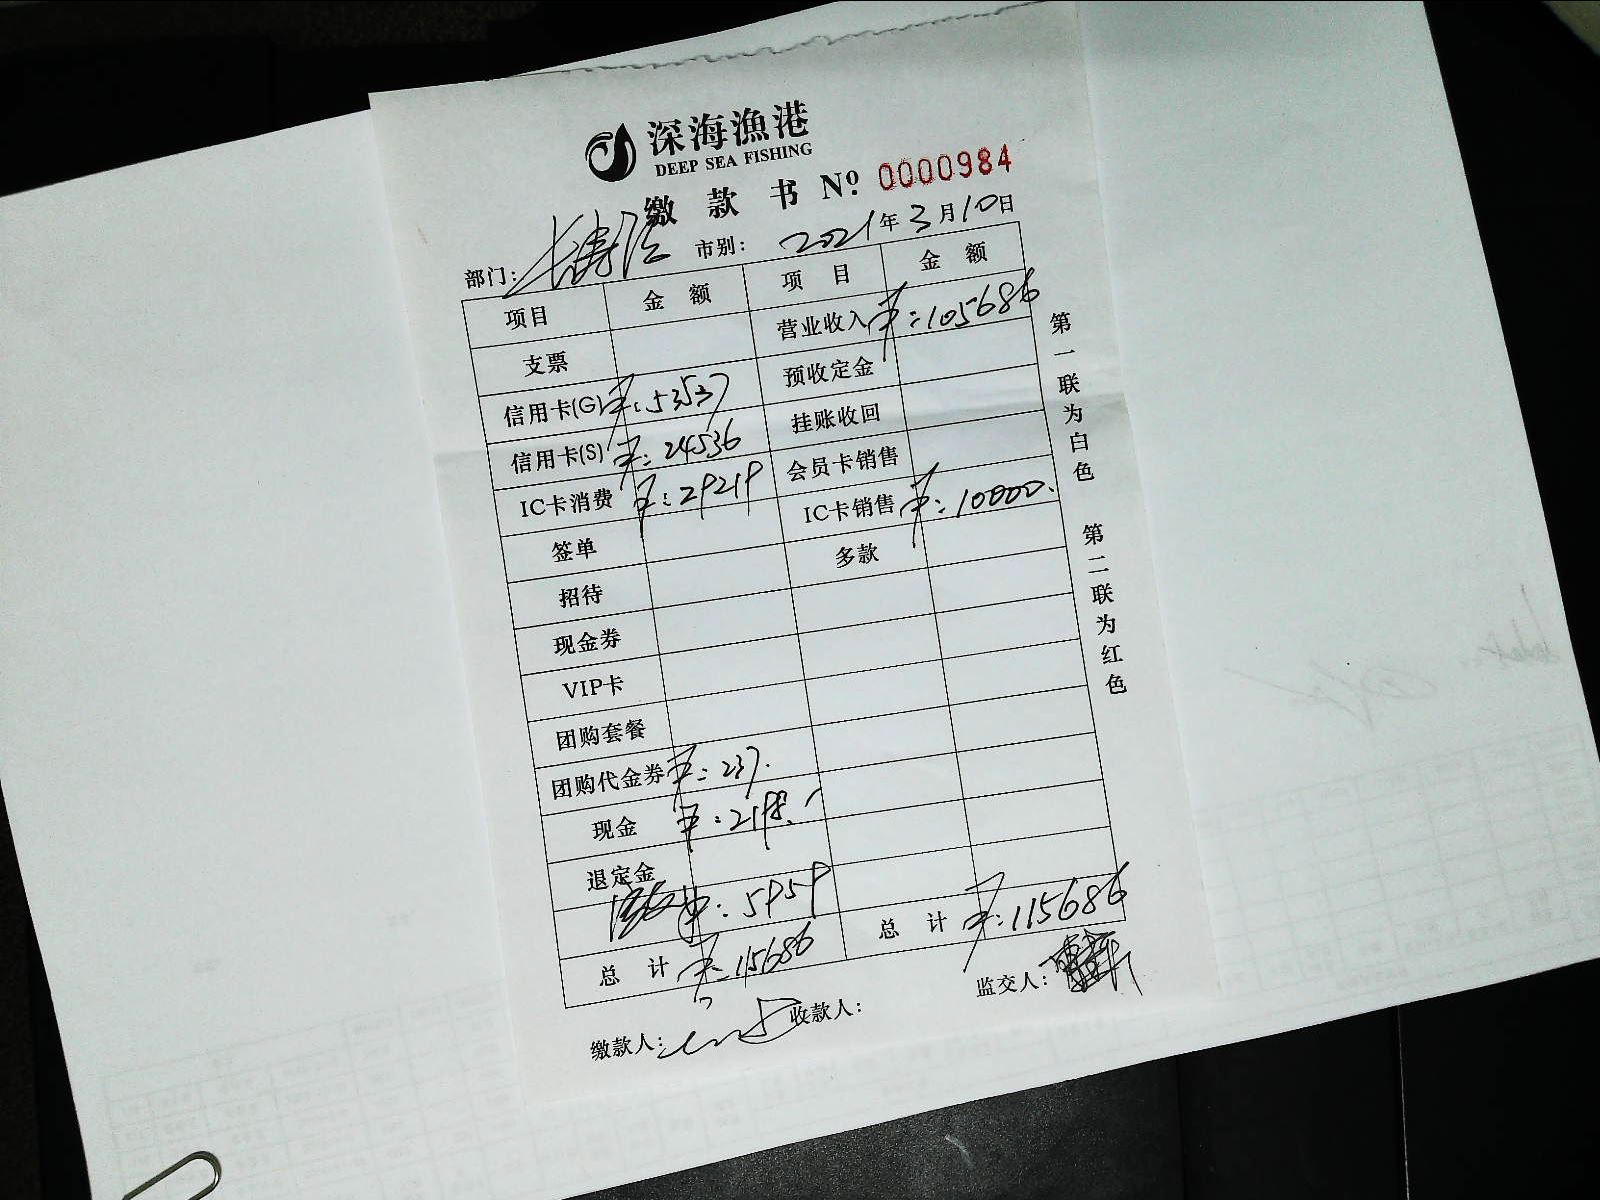 深海漁港
DEEP SEA FISHING
缴款书 Nº: 0000984
部门: 市别: 2021年3月10日
项目 金额 项目 金额
支票 营业收入 ¥:105686
信用卡(G) ¥:53537 预收定金
信用卡(S) ¥:24536 挂账收回
IC卡消费 ¥:29219 会员卡销售
签单 IC卡销售 ¥:10000.
招待 多款
现金券
VIP卡
团购套餐
团购代金券 ¥:237.
现金 ¥:2198.
退定金
¥:5959
总计 ¥:115686 总计 ¥:115686
缴款人: 收款人: 监交人:
第一联为白色 第二联为红色